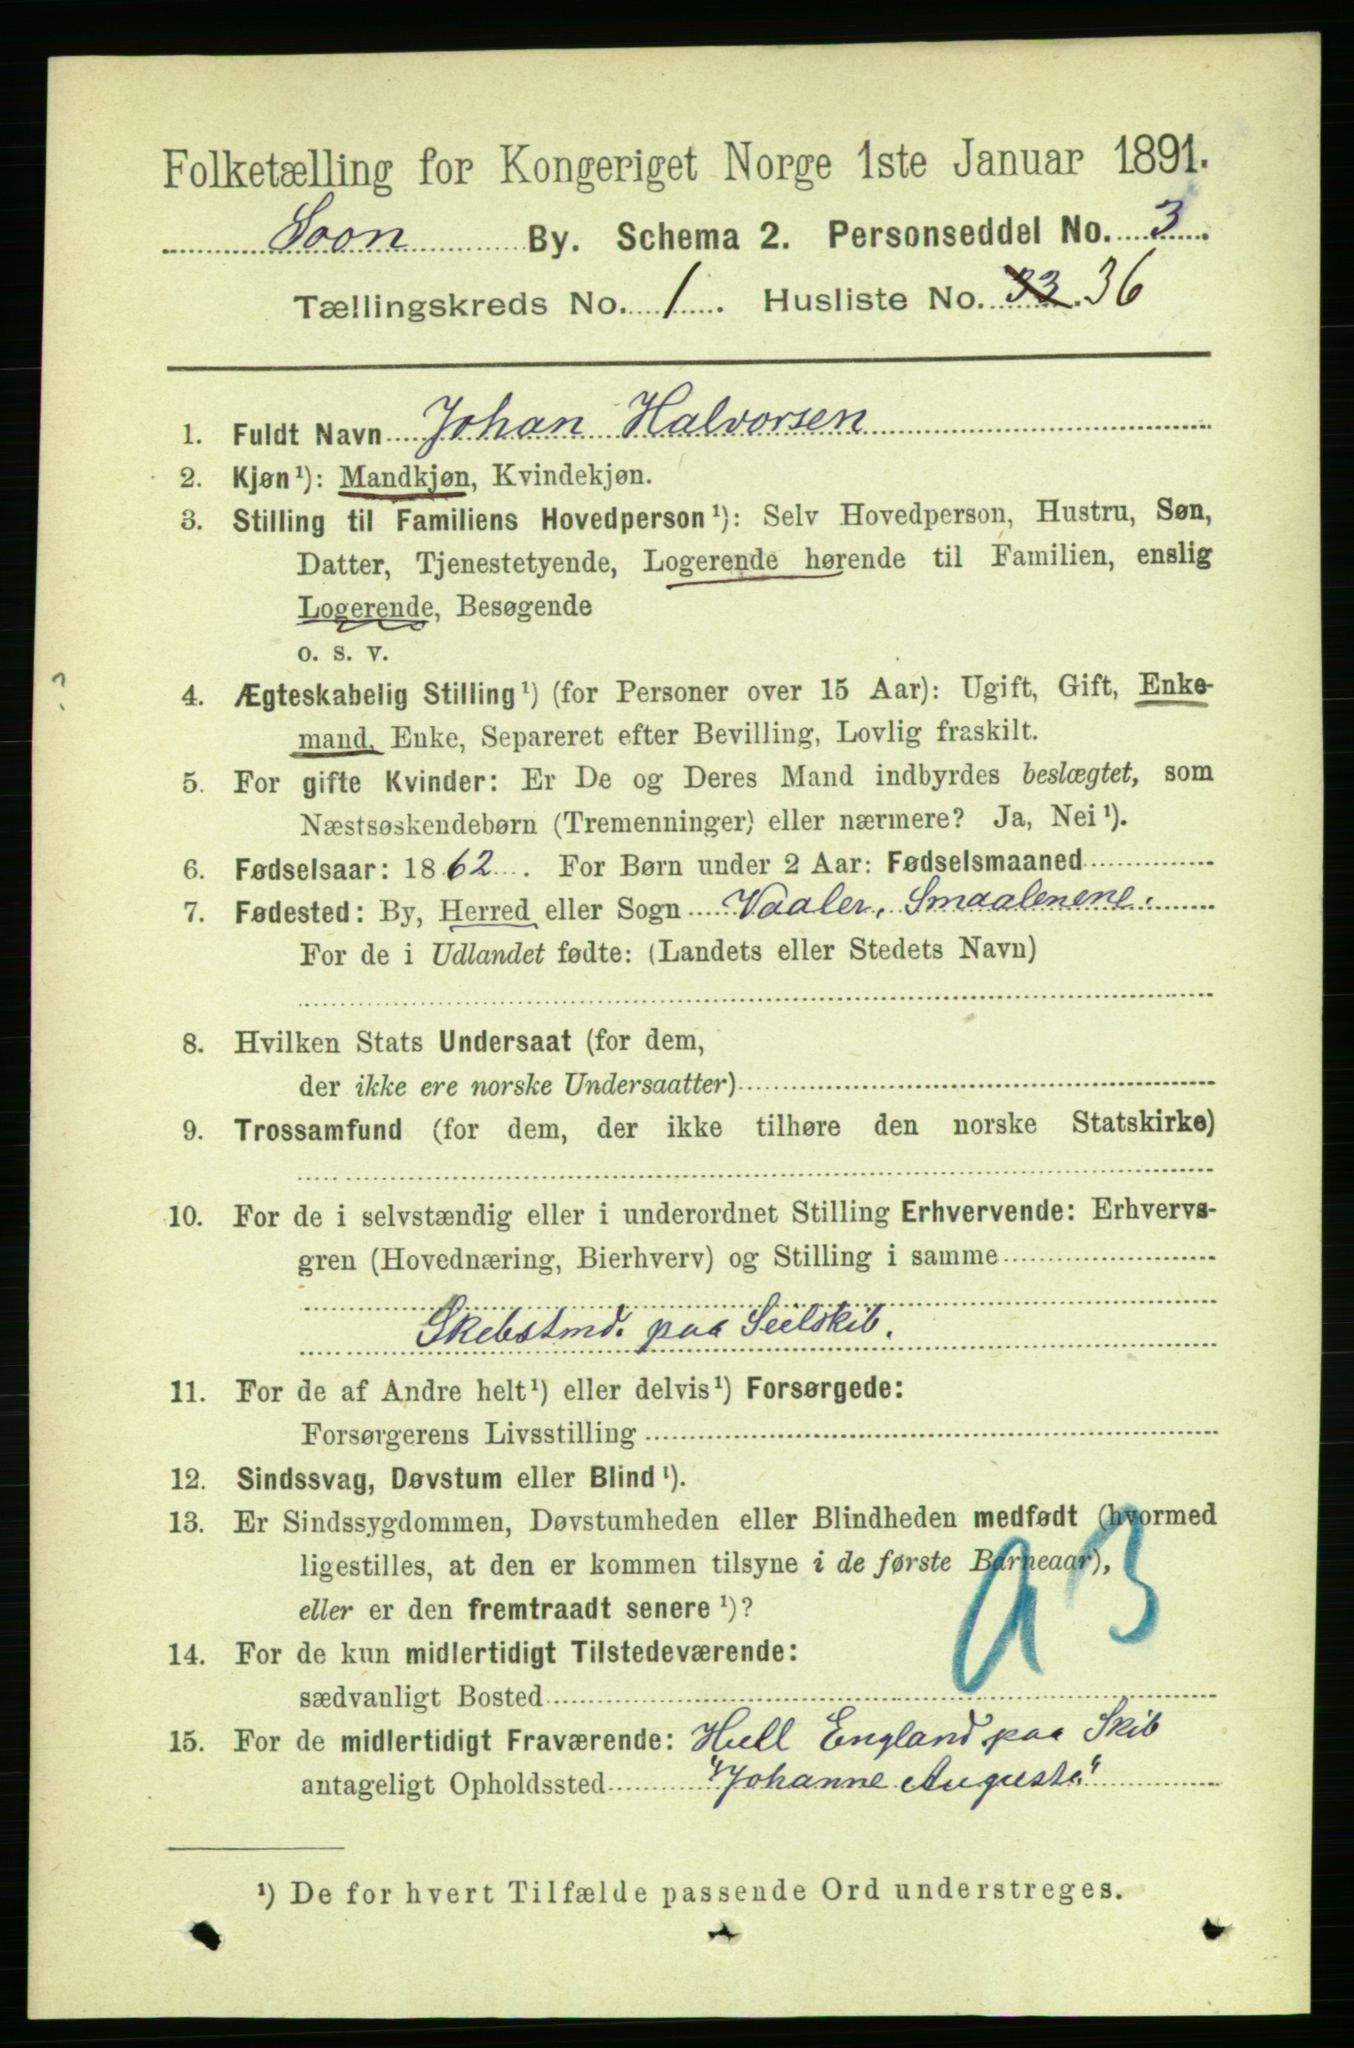 Folketælling for Kongeriget Norge 1ste Januar 1891.
Soon By. Schema 2. Personseddel No. 3.
Tællingskreds No. 1. Husliste No. 33. 36
1. Fuldt Navn Johan Halvorsen
2. Kjøn¹): Mandkjøn, Kvindekjøn.
3. Stilling til Familiens Hovedperson¹): Selv Hovedperson, Hustru, Søn,
Datter, Tjenestetyende, Logerende hørende til Familien, enslig
Logerende, Besøgende
o. s. v.
?
4. Ægteskabelig Stilling¹) (for Personer over 15 Aar): Ugift, Gift, Enke-
mand, Enke, Separeret efter Bevilling, Lovlig fraskilt.
5. For gifte Kvinder: Er De og Deres Mand indbyrdes beslægtet, som
Næstsøskendebørn (Tremenninger) eller nærmere? Ja, Nei¹).
6. Fødselsaar: 1862. For Børn under 2 Aar: Fødselsmaaned
7. Fødested: By, Herred eller Sogn Vaaler, Smaalenene.
For de i Udlandet fødte: (Landets eller Stedets Navn)
8. Hvilken Stats Undersaat (for dem,
der ikke ere norske Undersaatter)
9. Trossamfund (for dem, der ikke tilhøre den norske Statskirke)
10. For de i selvstændig eller i underordnet Stilling Erhvervende: Erhvervs-
gren (Hovednæring, Bierhverv) og Stilling i samme
Skibstmd. paa Seilskib.
11. For de af Andre helt¹) eller delvis¹) Forsørgede:
Forsørgerens Livsstilling
12. Sindssvag, Døvstum eller Blind¹).
13. Er Sindssygdommen, Døvstumheden eller Blindheden medfødt (hvormed
ligestilles, at den er kommen tilsyne i de første Barneaar),
eller er den fremtraadt senere¹)?
14. For de kun midlertidigt Tilstedeværende:
sædvanligt Bosted
15. For de midlertidigt Fraværende: Hull England paa Skib
antageligt Opholdssted "Johanne Auguste"
¹) De for hvert Tilfælde passende Ord understreges.